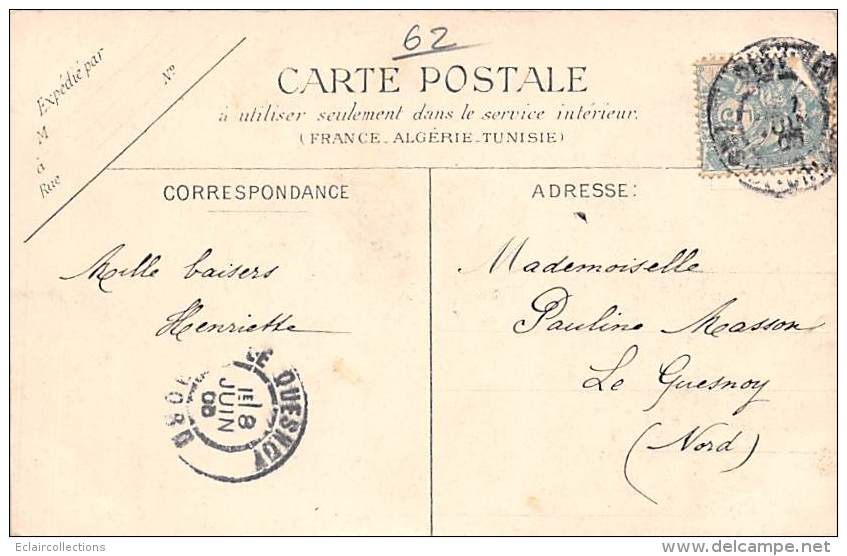 62
CARTE POSTALE
à utiliser seulement dans le service intérieur.
(FRANCE-ALGÉRIE-TUNISIE)
Expédié par
M
à
Rue
N°
CORRESPONDANCE
ADRESSE:
Mille baisers
Henriette
Mademoiselle
Pauline Masson
Le Quesnoy
(Nord)
LE QUESNOY
8
JUIN
NORD
Eclaircollections
www.delcampe.net